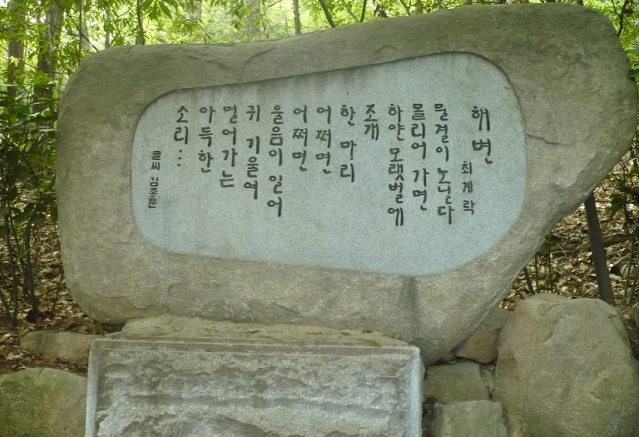 해변
최계락
물결이 노닐다
몰리어 가면
하얀 모랫벌에
조개
한 마리
어쩌면
어쩌면
울음이 일어
귀 기울여
멀어가는
아득한
소리…
글씨 김종문